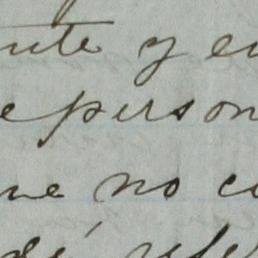 nte y en
e person
ue no co